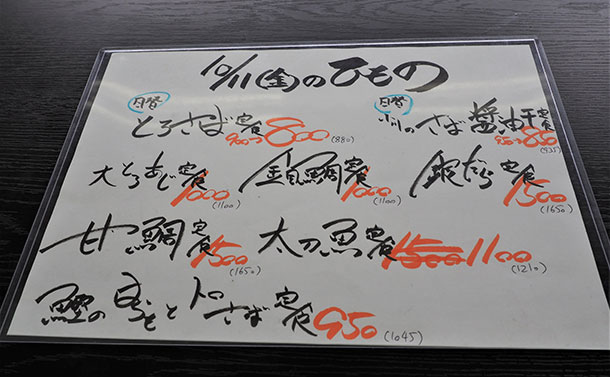 10/11(金)のひもの
日替 とろさば定食 900→800(880)
日替 のさば醤油干定食 950→850(935)
大とろあじ定食 1000(1100)
金目鯛定食 1000(1100)
銀だら定食 1500(1650)
甘鯛定食 1500(1650)
太刀魚定食 1500 1100(1210)
鰹のはらもとトロさば定食 950(1045)